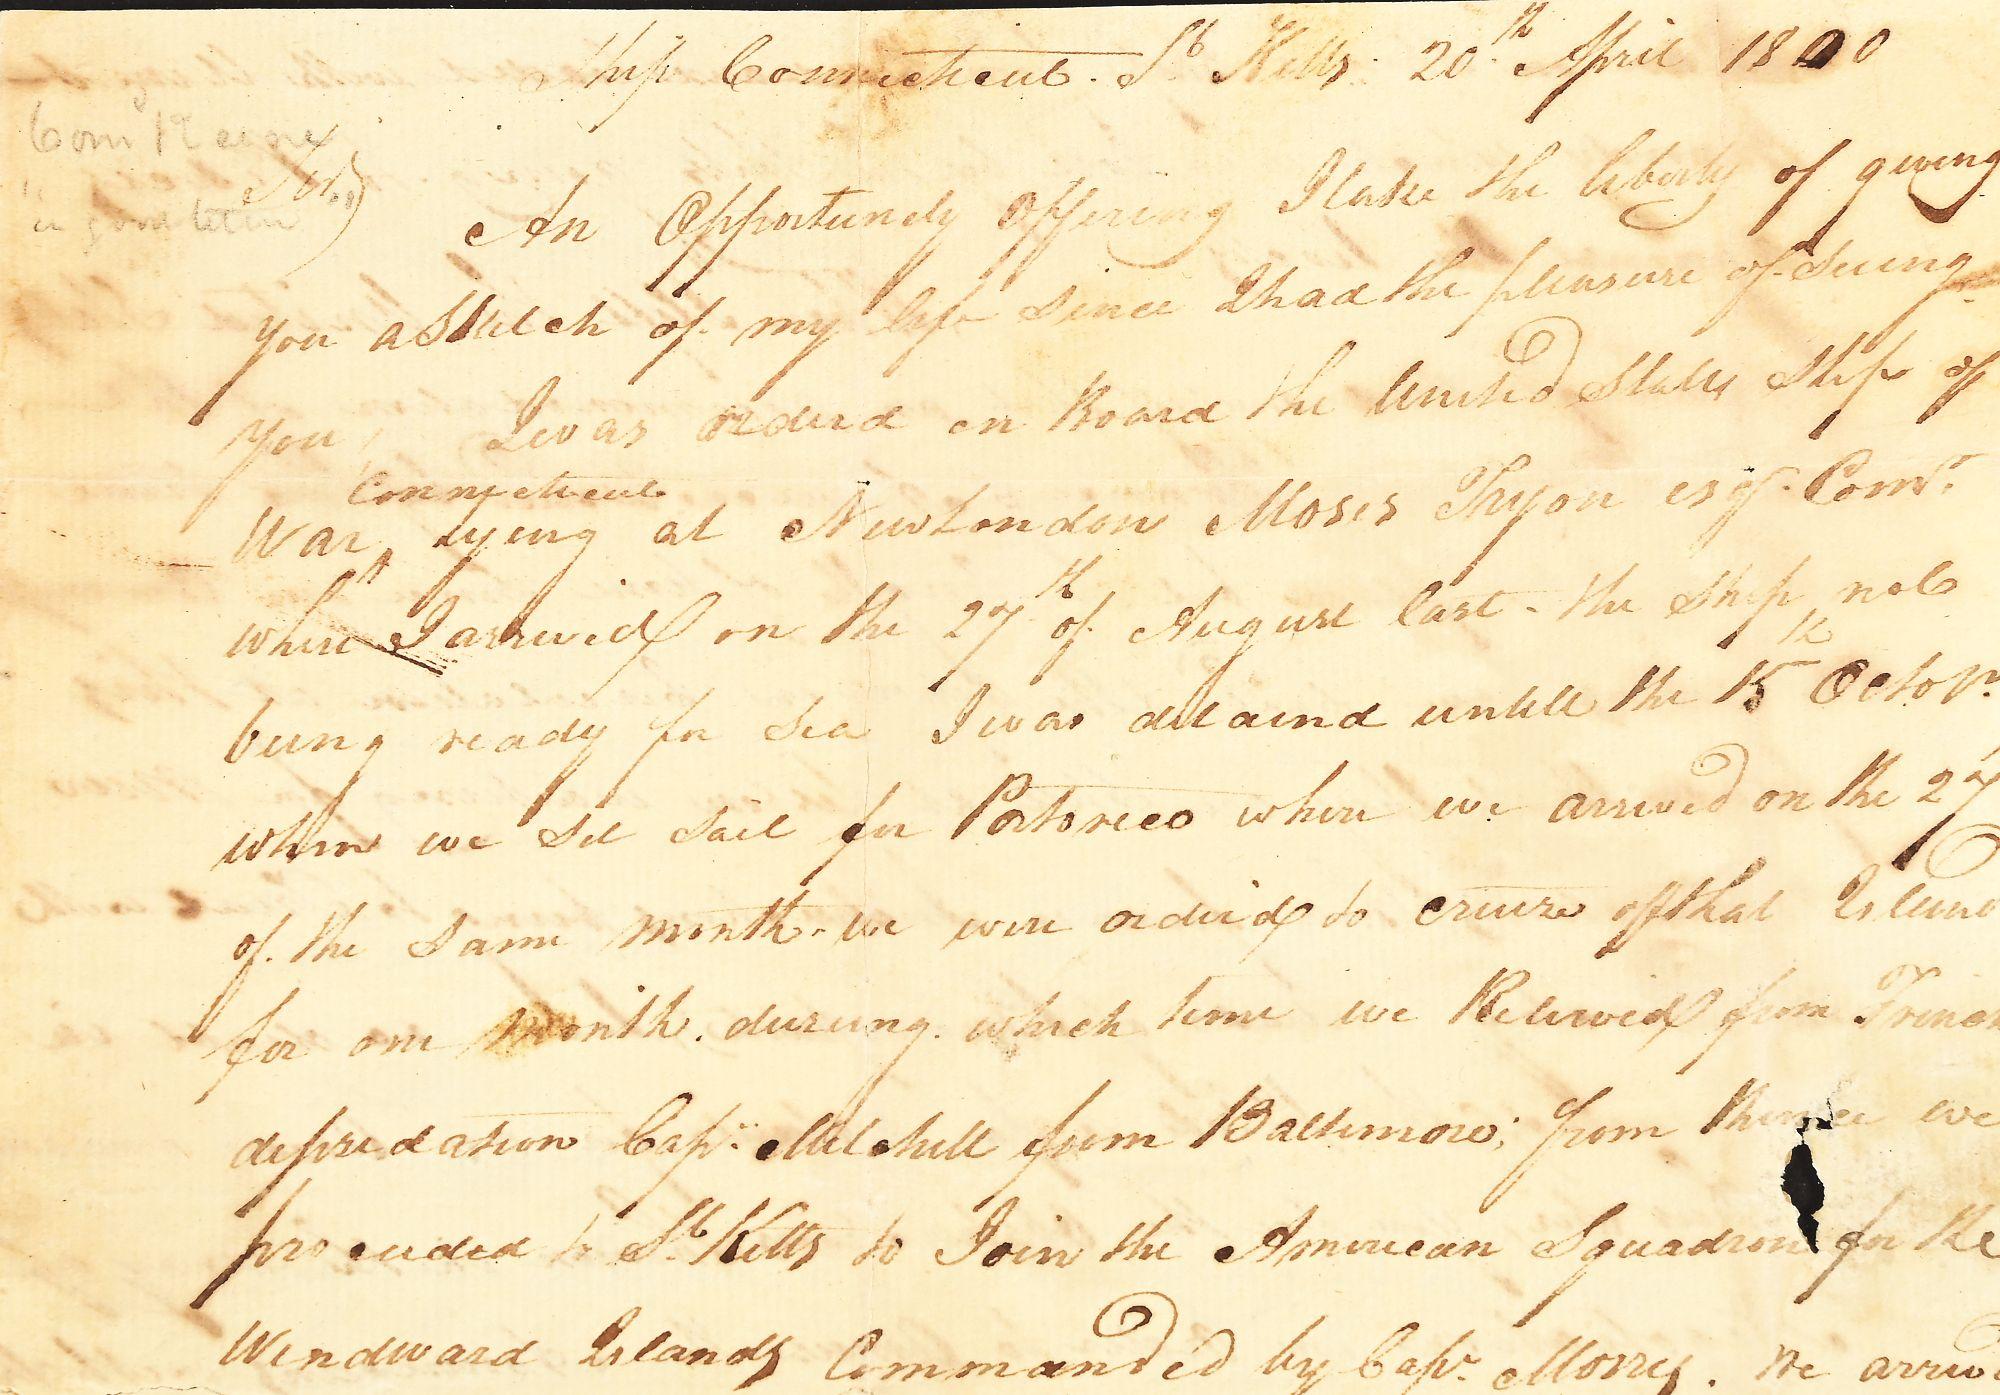 Ship Connecticut. St. Kitts. 20th April 1800
Sir,,)
a good letter
An Opportunely Offering I take the liberty of giving
you a Sketch of my life since I had the pleasure of Seeing
you, I was orderd on Board the United States Ship of
Connecticut
War, ^ lying at New London Moses Tryon esqr. Comdr
where I arrived on the 27th of August last - the Ship not
being ready for Sea I was detaind untill the 15th Octobr.
when we set sail for Portoreco where we arrived on the 27
of. the same month. we were orderd to cruize off that Island
for one month. during. which time we Relieved from French
depredation Capt. Mitchell from Baltimore; from thence we
proceeded to St. Kitts to Join the American Squadron for the
Windward Islands Commanded by Capt. Morris. We arrived